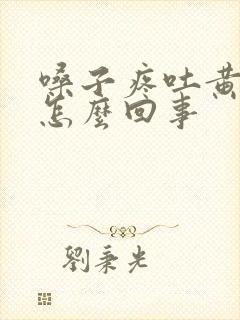 嗓子疼吐黄
怎麼回事
劉秉光